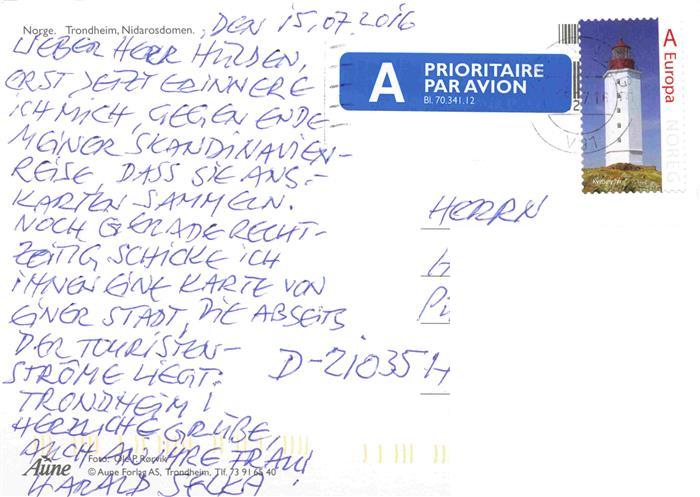 Norge. Trondheim, Nidarosdomen.
DEN 15.07.2016
LIEBER HERR HÜLDEN,
ERST JETZT ERINNERE
ICH MICH, GEGEN ENDE
MEINER SKANDINAVIEN-
REISE, DASS SIE ANS.-
KARTEN SAMMELN.
NOCH GERADE RECHT-
ZEITIG SCHICKE ICH
IHNEN EINE KARTE VON
EINER STADT, DIE ABSEITS
DER TOURISTEN-
STRÖME LIEGT:
TRONDHEIM!
HERZLICHE GRÜßE,
AUCH AN IHRE FRAU
HARALD SELKA!
A PRIORITAIRE
PAR AVION
Bl. 70.341.12
A Europa
NOREG
HERRN
D-21035 H
Aune
Foto: Ole P. Rørvik
© Aune Forlag AS, Trondheim. Tlf. 73 91 65 40